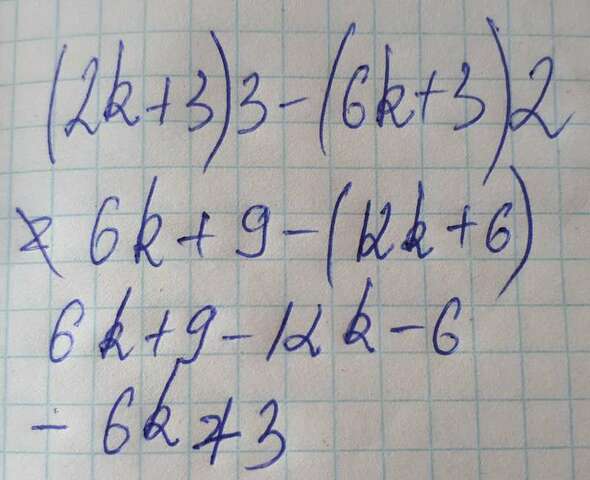 (2k+3)3-(6k+3)2
6k+9-(12k+6)
6k+9-12k-6
-6k+3